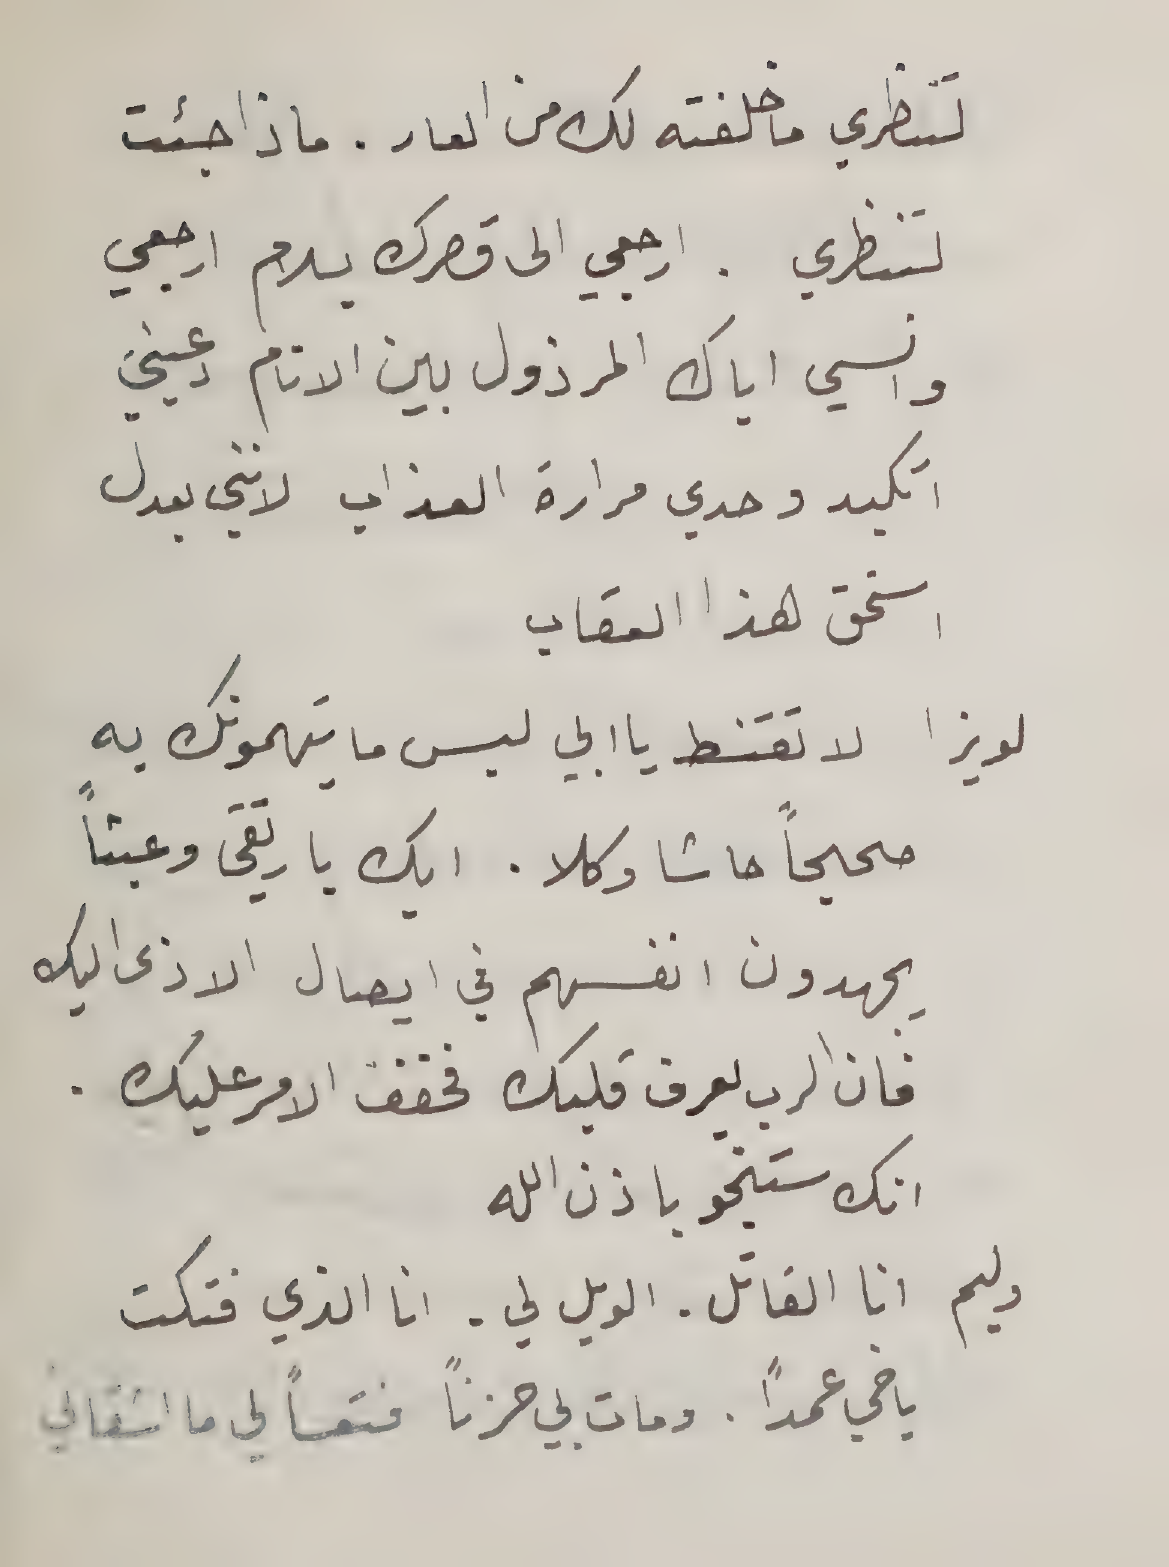 لتنظري ما خلفته لك من العار . ماذا جئت
لتنظري . ارجعي الى قصرك بسلام ارجعي
وانسي اباك المرذول بين الانام دعيني
اتكبد وحدي مرارة العذاب لانني بعدل
استحق هذا العقاب
لويزا لا تقنط يا ابي ليس ما يتهمونك به
صحيحاً حاشا وكلا . ابك يا رتقي وعبثاً
يجهدون انفسهم في ايصال الاذى اليك
فان الرب يعرف قلبك فخفف الامر عليك .
انك ستنجو باذن الله
وليم انا القاتل . الويل لي . انا الذي فتكت
باخي عمداً . ومات بي حزناً فتعساً لي ما اشقاني